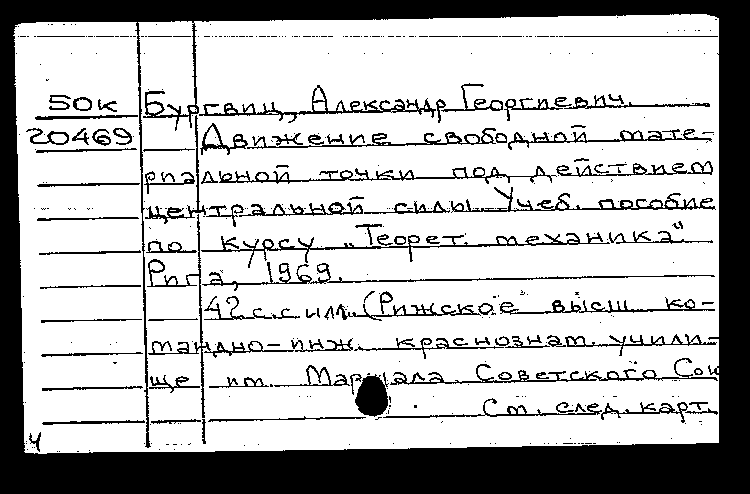 50к Бургвиц, Александр Георгиевич.
20469 Движение свободной мате-
риальной точки под действием
центральной силы. Учеб. пособие
по курсу „Теорет. механика“.
Рига, 1969.
42 с. с илл. (Рижское высш. ко-
мандно-инж. краснознам. учили-
ще им. Маршала Советского Сою
См. след. карт.
Ч